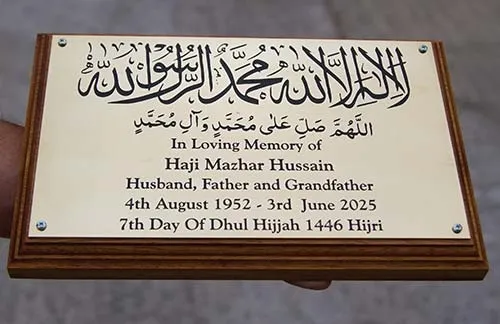 لا إله إلا الله محمد الرسول الله
اللَّهُمَّ صَلِّ عَلَى مُحَمَّدٍ وَآلِ مُحَمَّدٍ
In Loving Memory of
Haji Mazhar Hussain
Husband, Father and Grandfather
4th August 1952 - 3rd June 2025
7th Day Of Dhul Hijjah 1446 Hijri